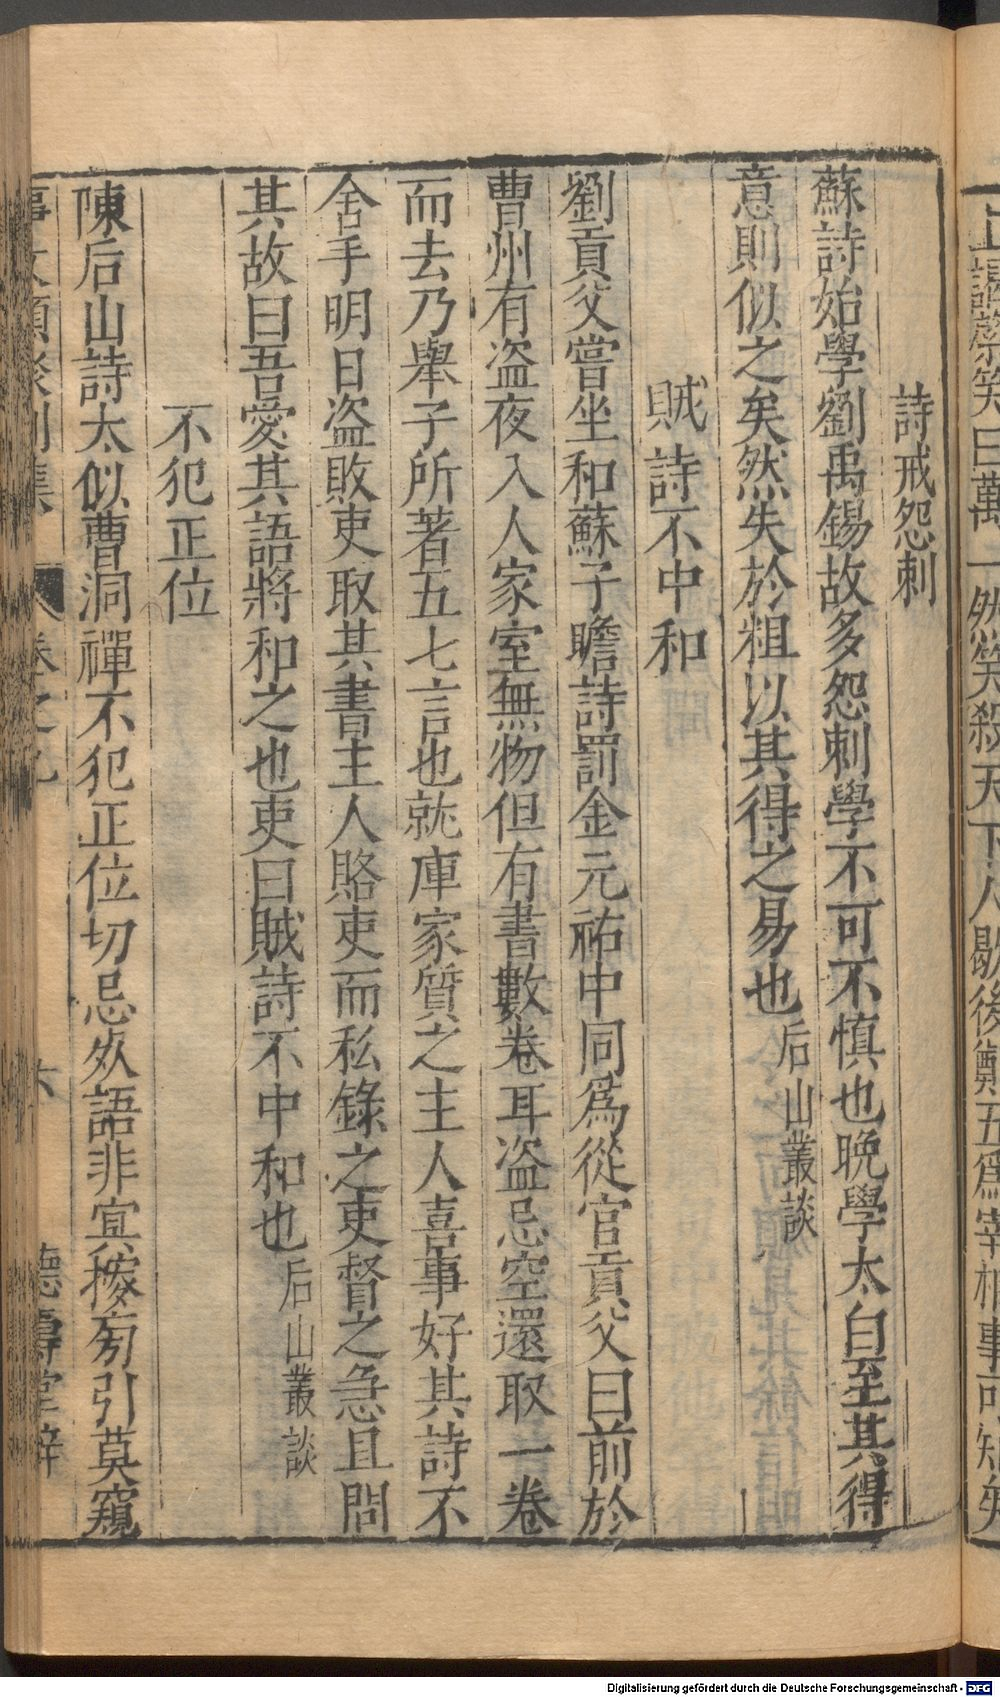 詩戒怨刺
蘇詩始學劉禹錫故多怨刺學不可不慎也晚學太白至其得
意則似之矣然失於粗以其得之易也后山叢談
賊詩不中和
劉貢父嘗坐和蘇子瞻詩罰金元祐中同爲從官貢父曰前於
曹州有盗夜入人家室無物但有書數卷耳盗忌空還取一卷
而去乃舉子所著五七言也就庫家質之主人喜事好其詩不
舍手明日盗敗吏取其書主人賂吏而私錄之吏督之急且問
其故曰吾愛其語將和之也吏曰賊詩不中和也后山叢談
不犯正位
陳后山詩太似曹洞禪不犯正位切忌死語非冥搜旁引莫窺
卷之九 六 德壽堂梓
Digitalisierung gefördert durch die Deutsche Forschungsgemeinschaft - DFG